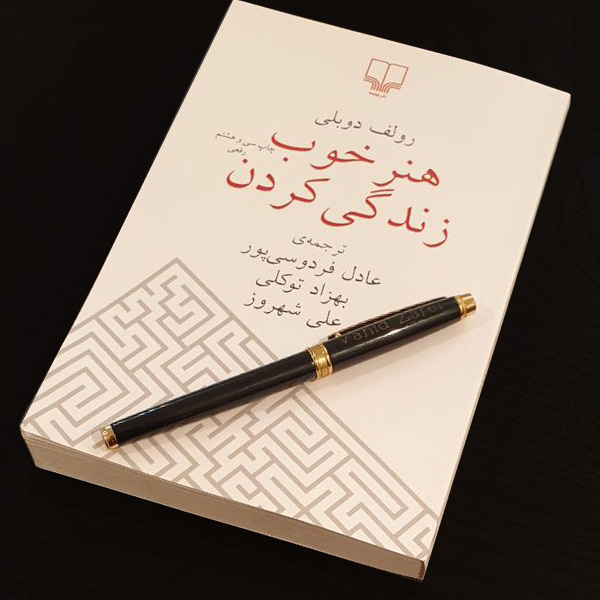 نشرچشمه
رولف دوبلی
هنر خوب
زندگی کردن
چاپ سی و هشتم
رقعی
ترجمه‌ی
عادل فردوسی‌پور
بهزاد توکلی
علی شهروز
Vahid Zarei